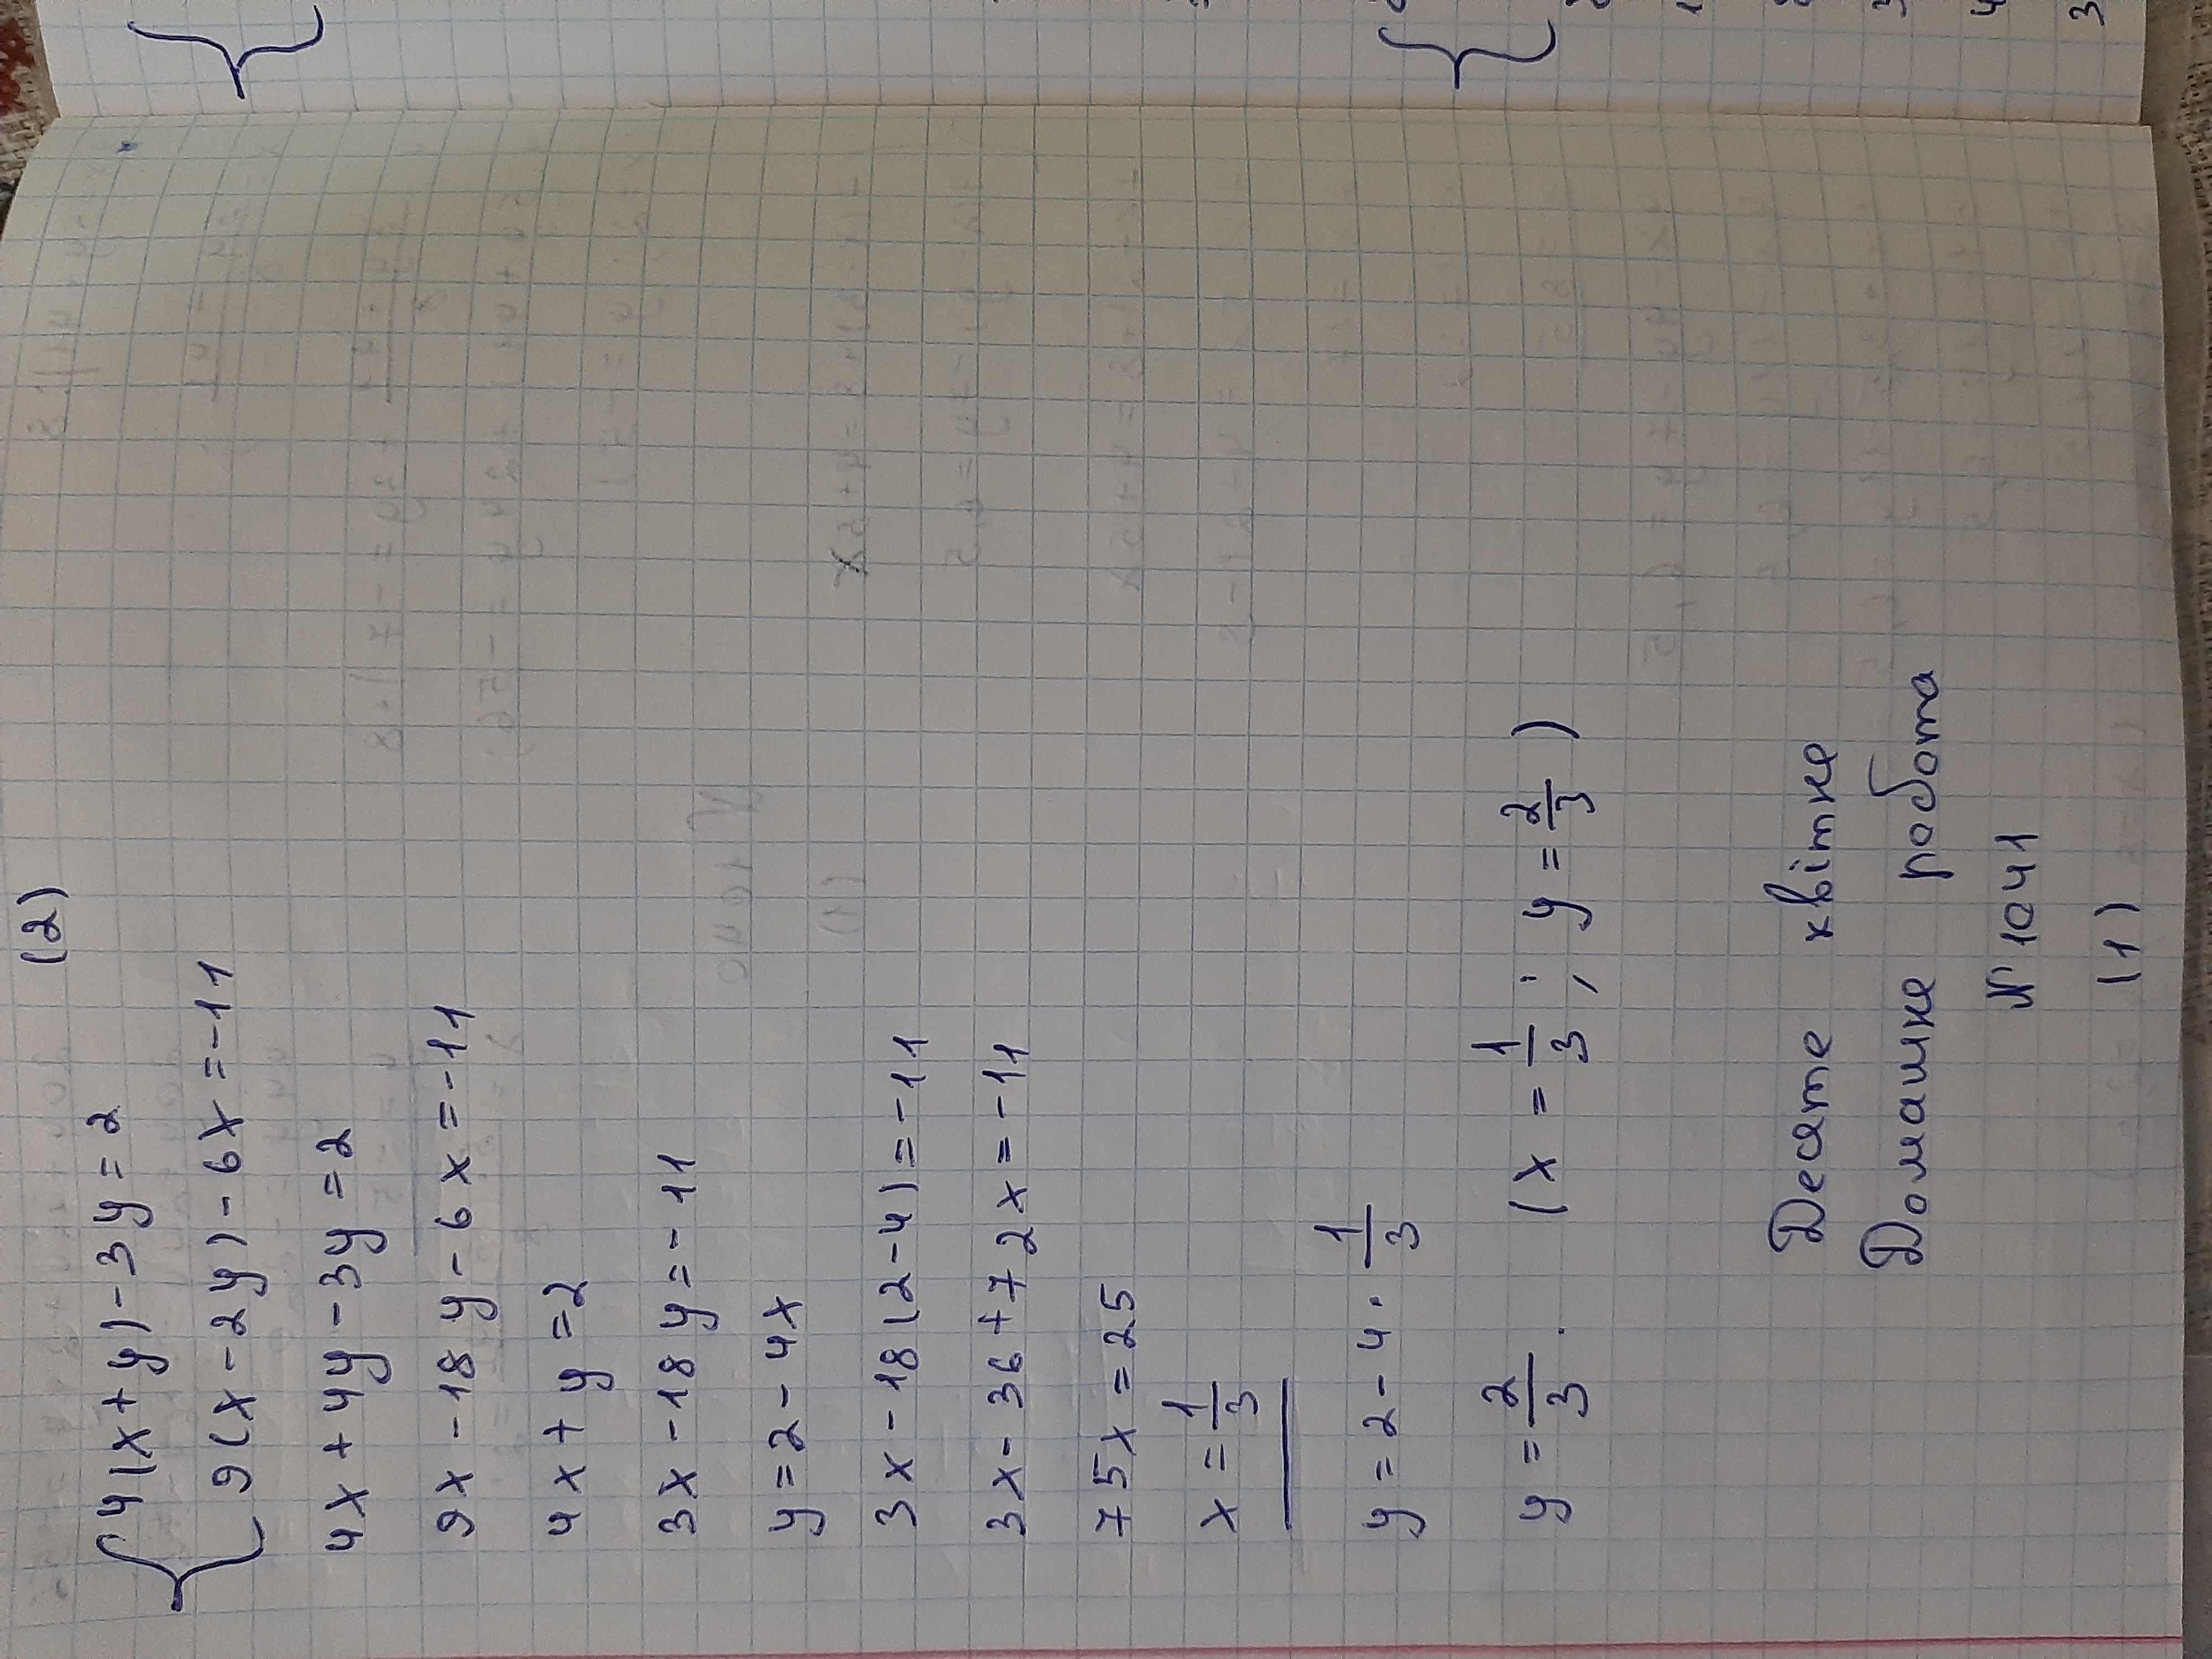 (2)
4(x+y)-3y=2
9(x-2y)-6x=-11
4x+4y-3y=2
9x-18y-6x=-11
4x+y=2
3x-18y=-11
y=2-4x
3x-18(2-4)=-11
3x-36+72x=-11
75x=25
x=1/3
y=2-4·1/3
y=2/3. (x=1/3; y=2/3)
Десяте квітня
Домашня робота
№1041
(1)